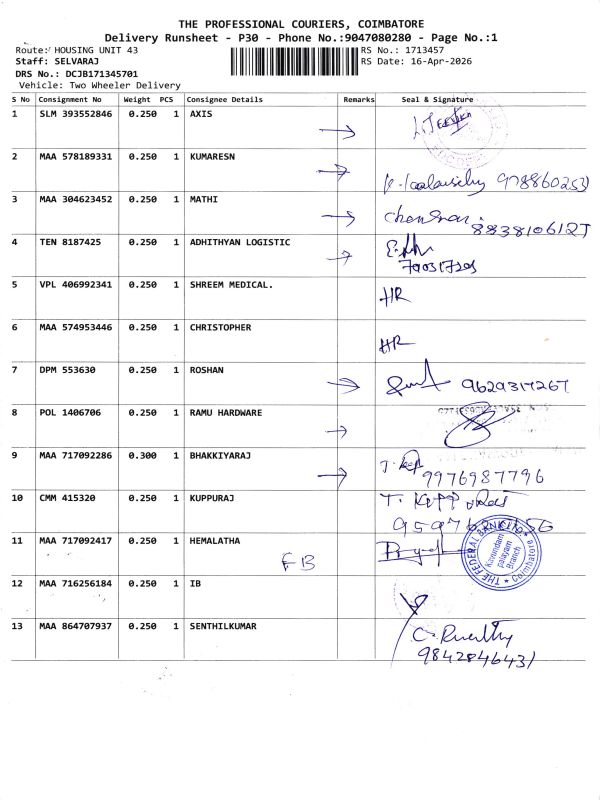 THE PROFESSIONAL COURIERS, COIMBATORE
Delivery Runsheet - P30 - Phone No.:9047080280 - Page No.:1
Route: HOUSING UNIT 43 RS No.: 1713457
Staff: SELVARAJ RS Date: 16-Apr-2026
DRS No.: DCJB171345701
Vehicle: Two Wheeler Delivery
S No Consignment No Weight PCS Consignee Details Remarks Seal & Signature
1 SLM 393552846 0.250 1 AXIS
2 MAA 578189331 0.250 1 KUMARESN
3 MAA 304623452 0.250 1 MATHI
4 TEN 8187425 0.250 1 ADHITHYAN LOGISTIC
5 VPL 406992341 0.250 1 SHREEM MEDICAL. HR
6 MAA 574953446 0.250 1 CHRISTOPHER HR
7 DPM 553630 0.250 1 ROSHAN 9629317267
8 POL 1406706 0.250 1 RAMU HARDWARE
9 MAA 717092286 0.300 1 BHAKKIYARAJ 9976987796
10 CMM 415320 0.250 1 KUPPURAJ T.
11 MAA 717092417 0.250 1 HEMALATHA FB
THE FEDERAL BANK LTD. Kannndam palayam Branch Coimbatore
12 MAA 716256184 0.250 1 IB
13 MAA 864707937 0.250 1 SENTHILKUMAR
9842846431